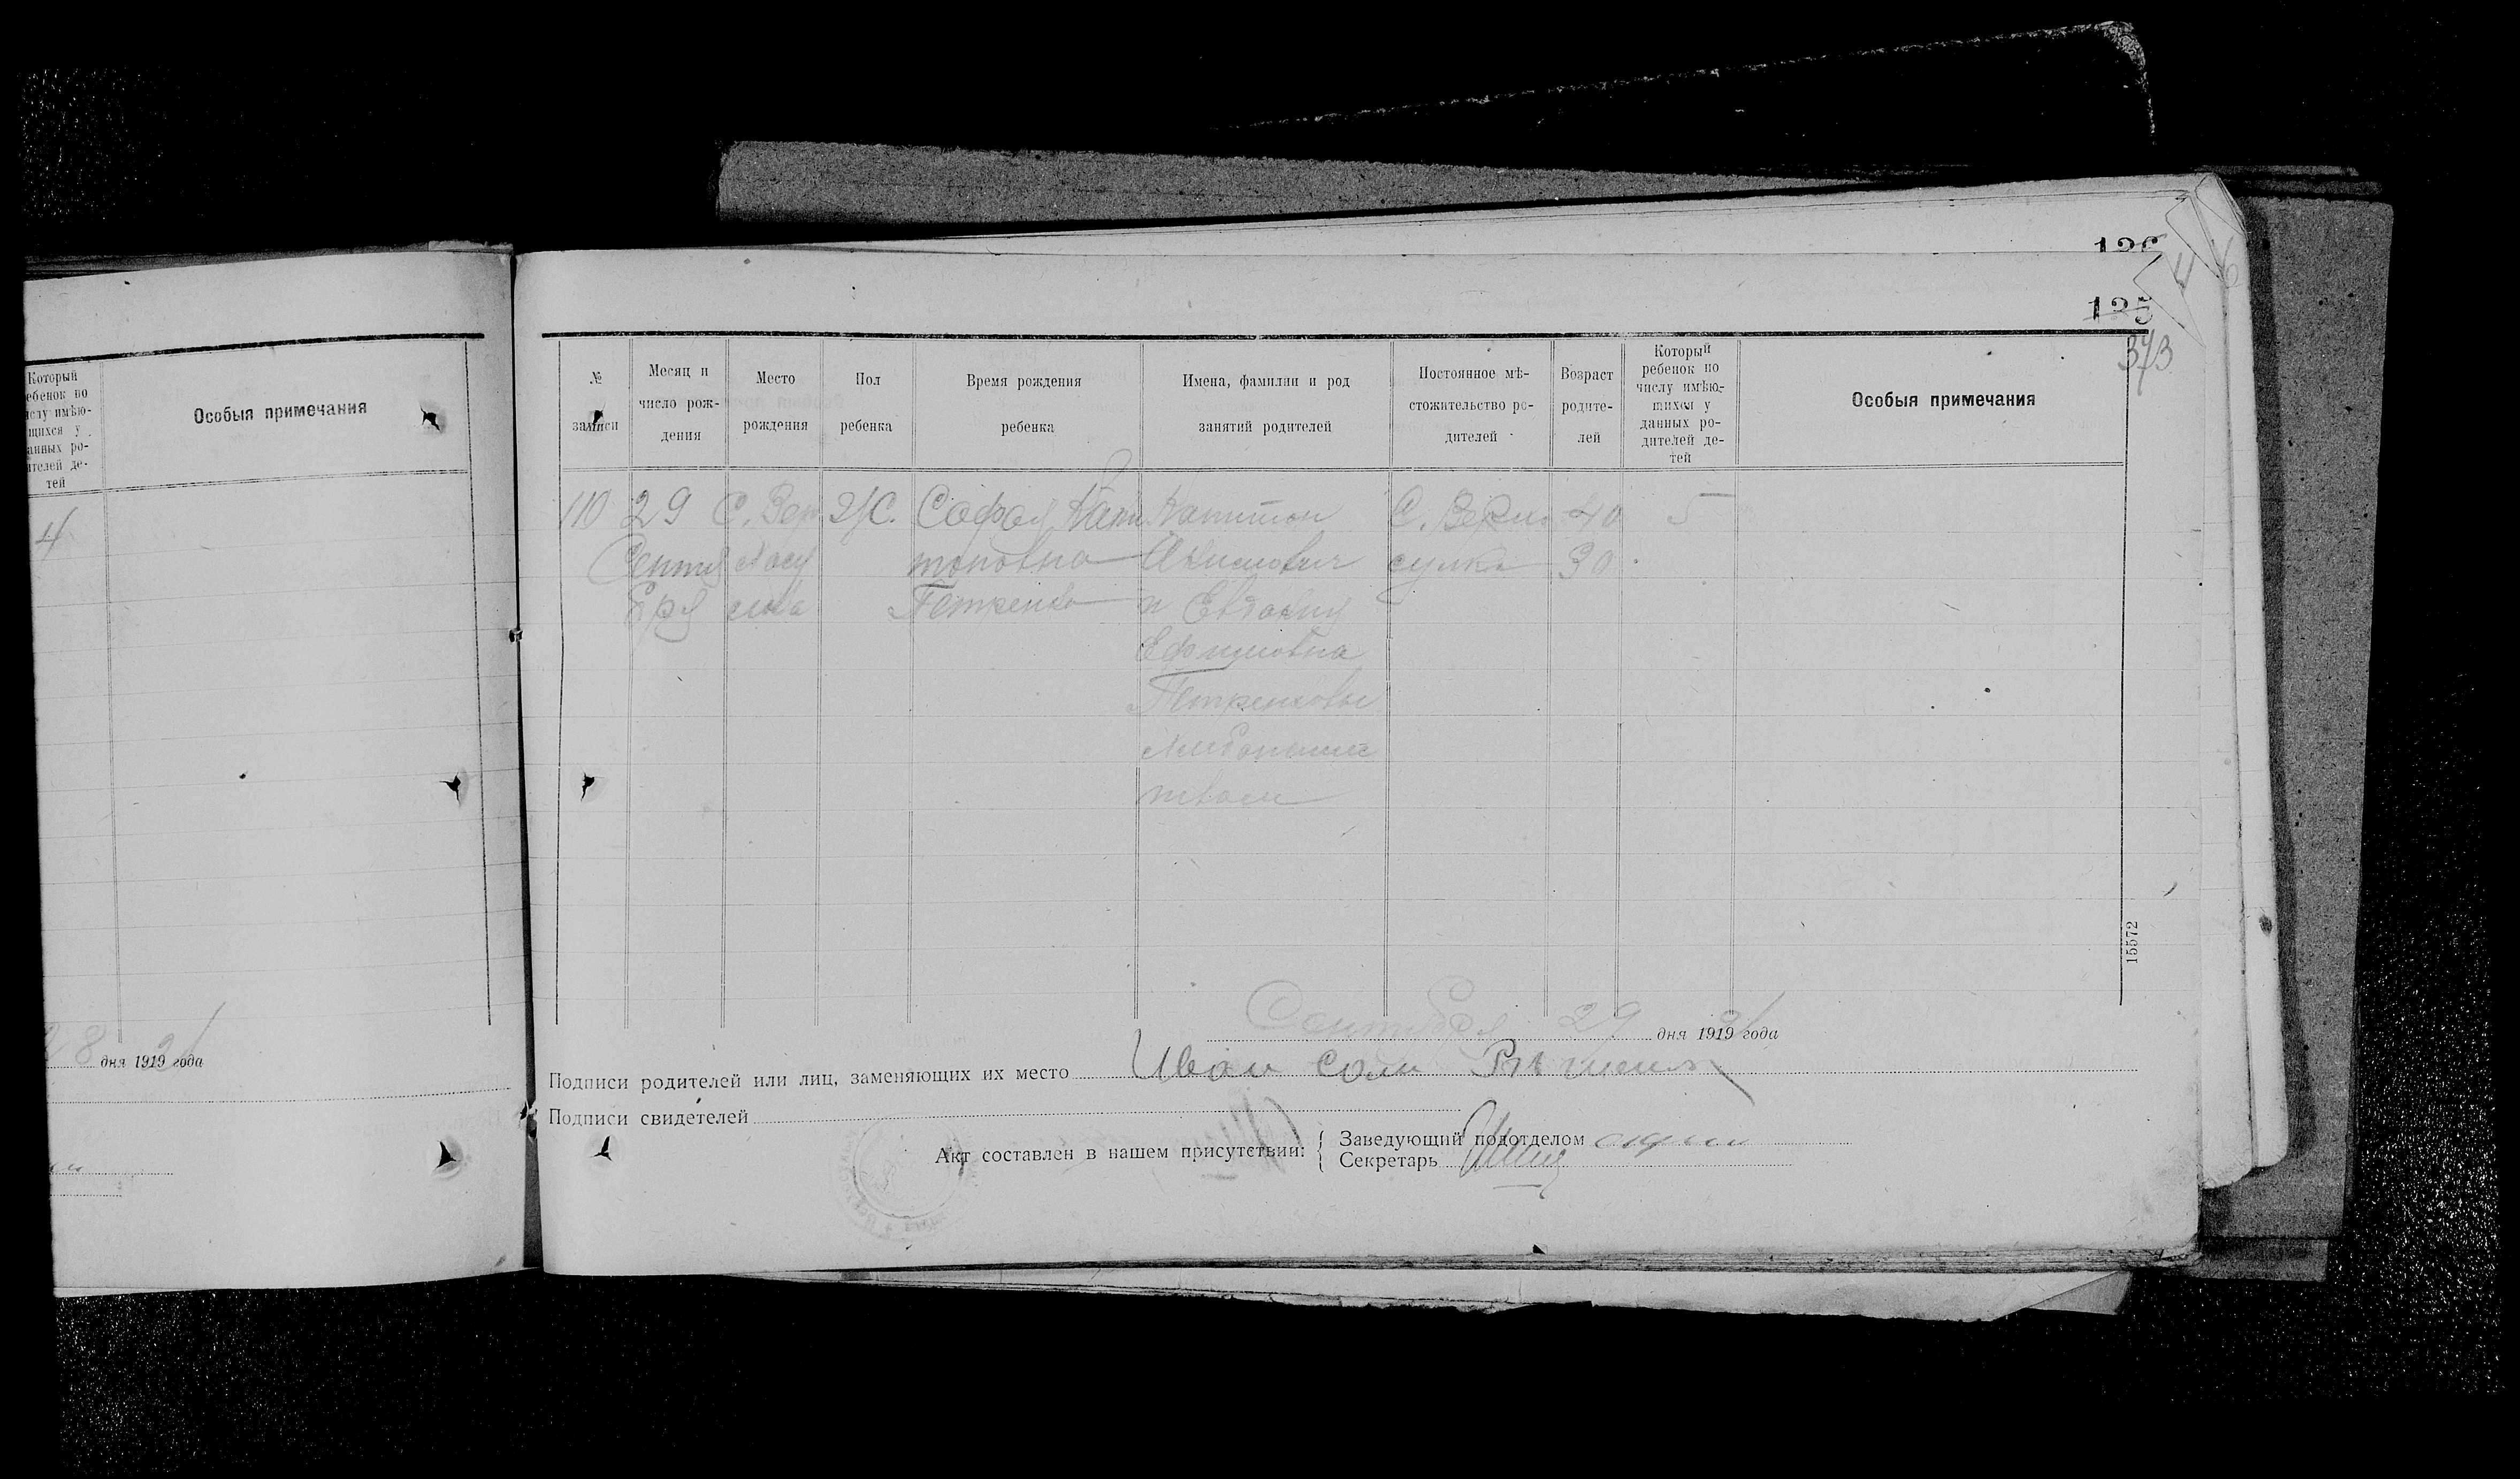 125
373
Который
ребенок по
числу имѣю-
щихся у
данных ро-
дителей де-
тей
Особыя примечания
4
28 дня 1919 года
№
записи
Месяц и
число рож-
дения
Место
рождения
Пол
ребенка
Время рождения
ребенка
Имена, фамилии и род
занятий родителей
Постоянное мѣ-
стожительство ро-
дителей
Возраст
родите-
лей
Который
ребенок по
числу имѣю-
щихся у
данных ро-
дителей де-
тей
Особыя примечания
110
29
Сентя
бря
С.
Ж.
Софья Капи
тоновна
Петренко
Капитон
и Евдокия
Ефимовна
Петренковы
Хлебопаше
ством
С.
40
30
5
Сентября 29 дня 1919 года
15572
Подписи родителей или лиц, заменяющих их место Иван
Подписи свидетелей
Акт составлен в нашем присутствии:
Заведующий подотделом
Секретарь